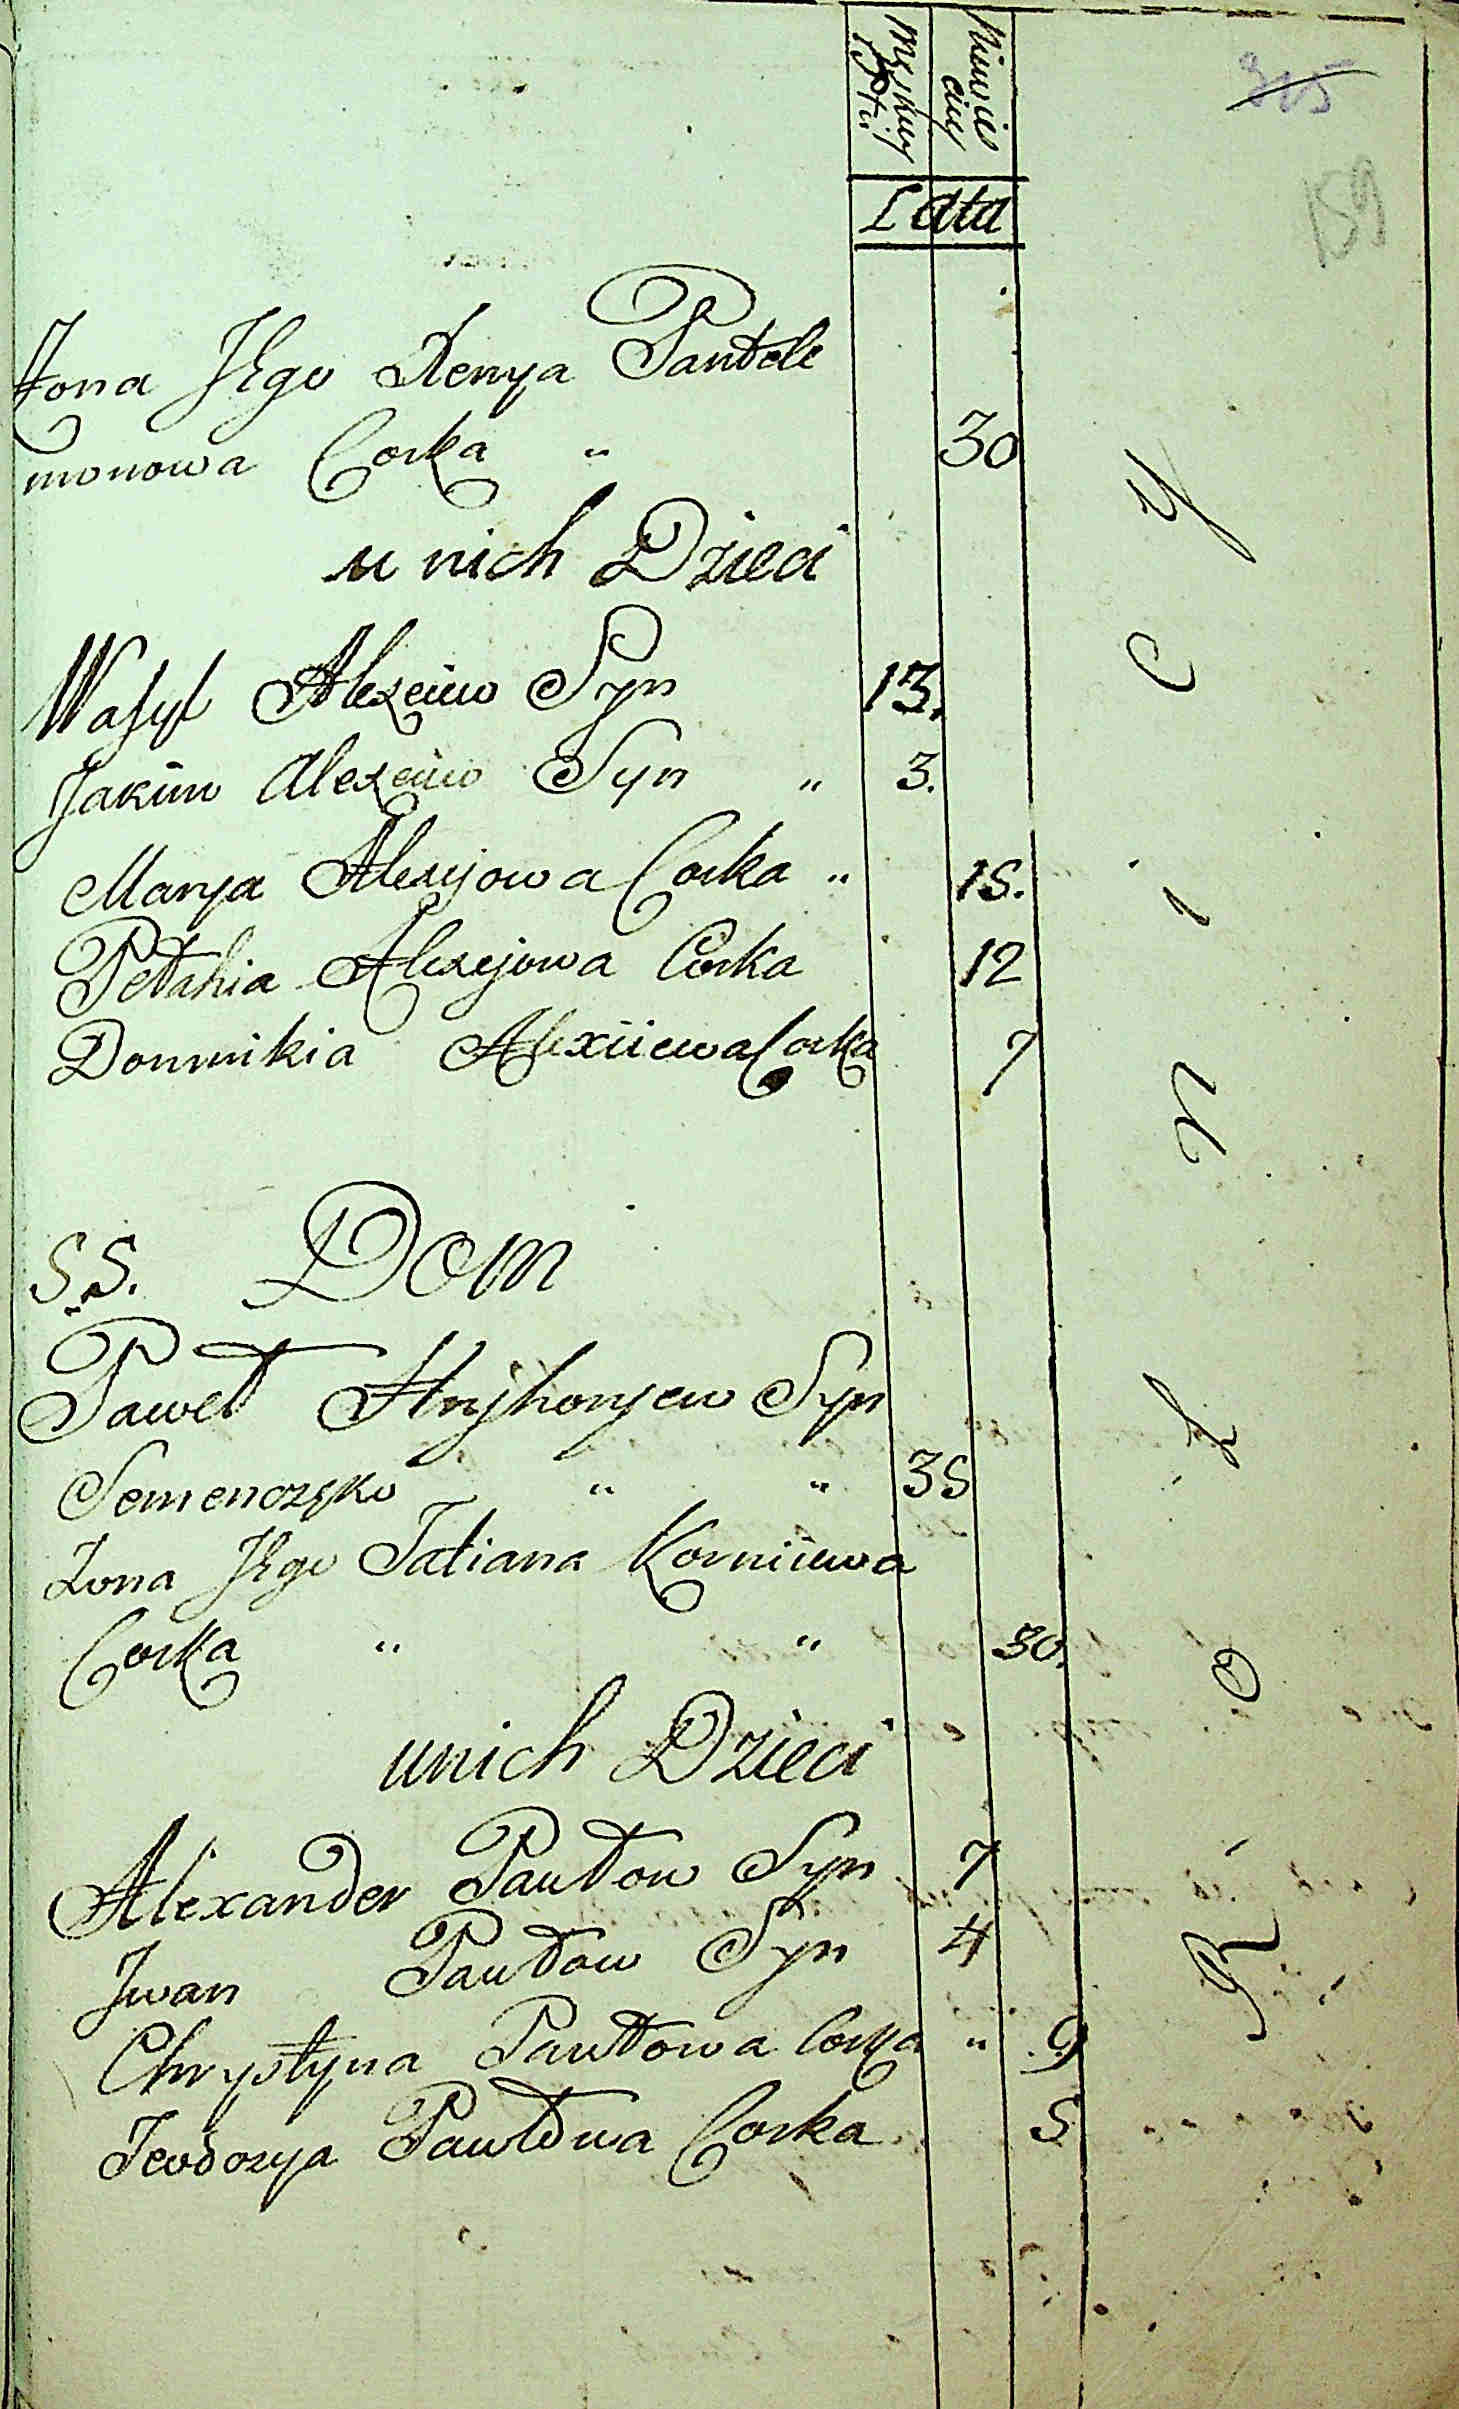 Męskiey Płci
Niewieściey
Lata
315
159
Żona Jego Xenya Pantele
monowa Corka " 30
u nich Dzieci
Wasyl Alexeiiw Syn 13.
Jakim Alexeiiw Syn " 3.
Marya Alexejowa Corka " 15.
Pełahia Alexejowa Corka 12
Domnikia Alexiiewa Corka 7
55. Dom
Paweł Hryhoryew Syn
Semenczęko " " 35
Zona Jego Tatiana Korniiewa
Corka " " 30.
unich Dzieci
Alexander Pawłow Syn 7
Jwan Pawłow Syn 4
Chrystyna Pawłowa Corka " 9
Teodozya Pawłowa Corka 5
Rolnicy